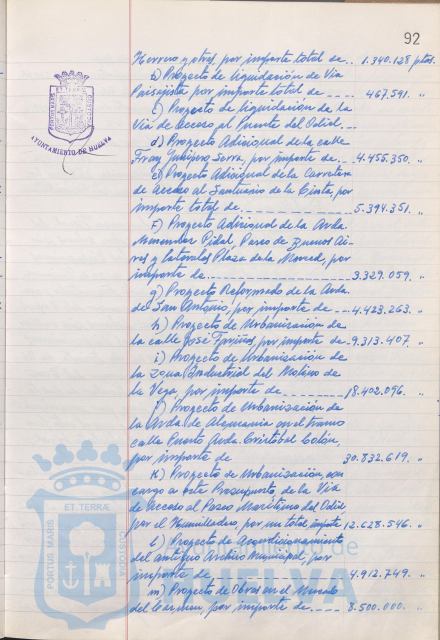 92
Herrero y otros, por importe total de -- 1.340.128 ptas.
b) Proyecto de liquidación de Via
Paisajista por importe total de ---- 467.591. "
c) Proyecto de liquidación de la
Via de Acceso al Puente del Odiel. ---
d) Proyecto Adicional de la calle
Fray Junípero Serra, por importe de -- 4.455.350. "
e) Proyecto Adicional de la Carretera
de Acceso al Santuario de la Cinta, por
importe total de ---------- 5.394.351. "
F) Proyecto Adicional de la Avda.
Menendez Pidal, Paseo de Buenos Ai-
res y laterales Plaza de la Merced, por
importe de ---------- 3.329.059. "
g) Proyecto Reformado de la Avda.
de San Antonio, por importe de --- 4.423.263. "
h) Proyecto de Urbanización de
la calle José Fariñas, por importe de - 9.313.407. "
i) Proyecto de Urbanización de
la zona Industrial del Molino de
la Vega, por importe de ------ 18.402.096. "
j) Proyecto de Urbanización de
la Avda. de Alemania en el tramo
calle Puerto Avda. Cristóbal Colón,
por importe de 30.832.619. "
K) Proyecto de Urbanización, con
cargo a este Presupuesto, de la Via
de Acceso al Paseo Marítimo del Odiel,
por el Humilladero, por un total importe 12.628.546. "
l) Proyecto de Acondicionamiento
del antiguo Archivo Municipal, por
importe de ---------- 4.912.749. "
m) Proyecto de Obras en el Mercado
del Carmen, por importe de ---- 8.500.000. "
AYUNTAMIENTO DE HUELVA
PORTUS MARIS
ET TERRÆ
CUSTODIA
de
HUELVA